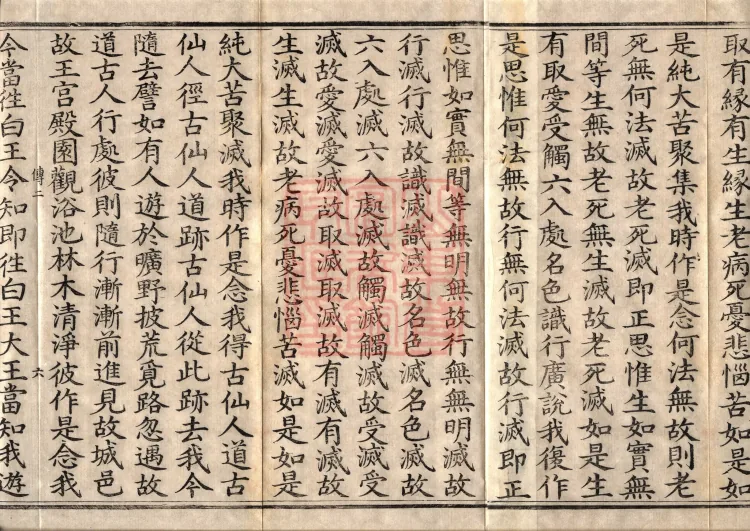 取有緣有生緣生老病死憂悲惱苦如是如
是純大苦聚集我時作是念何法無故則老
死無何法滅故老死滅即正思惟生如實無
間等生無故老死無生滅故老死滅如是生
有取愛受觸六入處名色識行廣說我復作
是思惟何法無故行無何法滅故行滅即正
思惟如實無間等無明無故行無無明滅故
行滅行滅故識滅識滅故名色滅名色滅故
六入處滅六入處滅故觸滅觸滅故受滅受
滅故愛滅愛滅故取滅取滅故有滅有滅故
生滅生滅故老病死憂悲惱苦滅如是如是
純大苦聚滅我時作是念我得古仙人道古
仙人徑古仙人道跡古仙人從此跡去我今
隨去譬如有人遊於曠野披荒覓路忽遇故
道古人行處彼則隨行漸漸前進見故城邑
故王宮殿園觀浴池林木清淨彼作是念我
傳二 六
今當往白王令知即往白王大王當知我遊